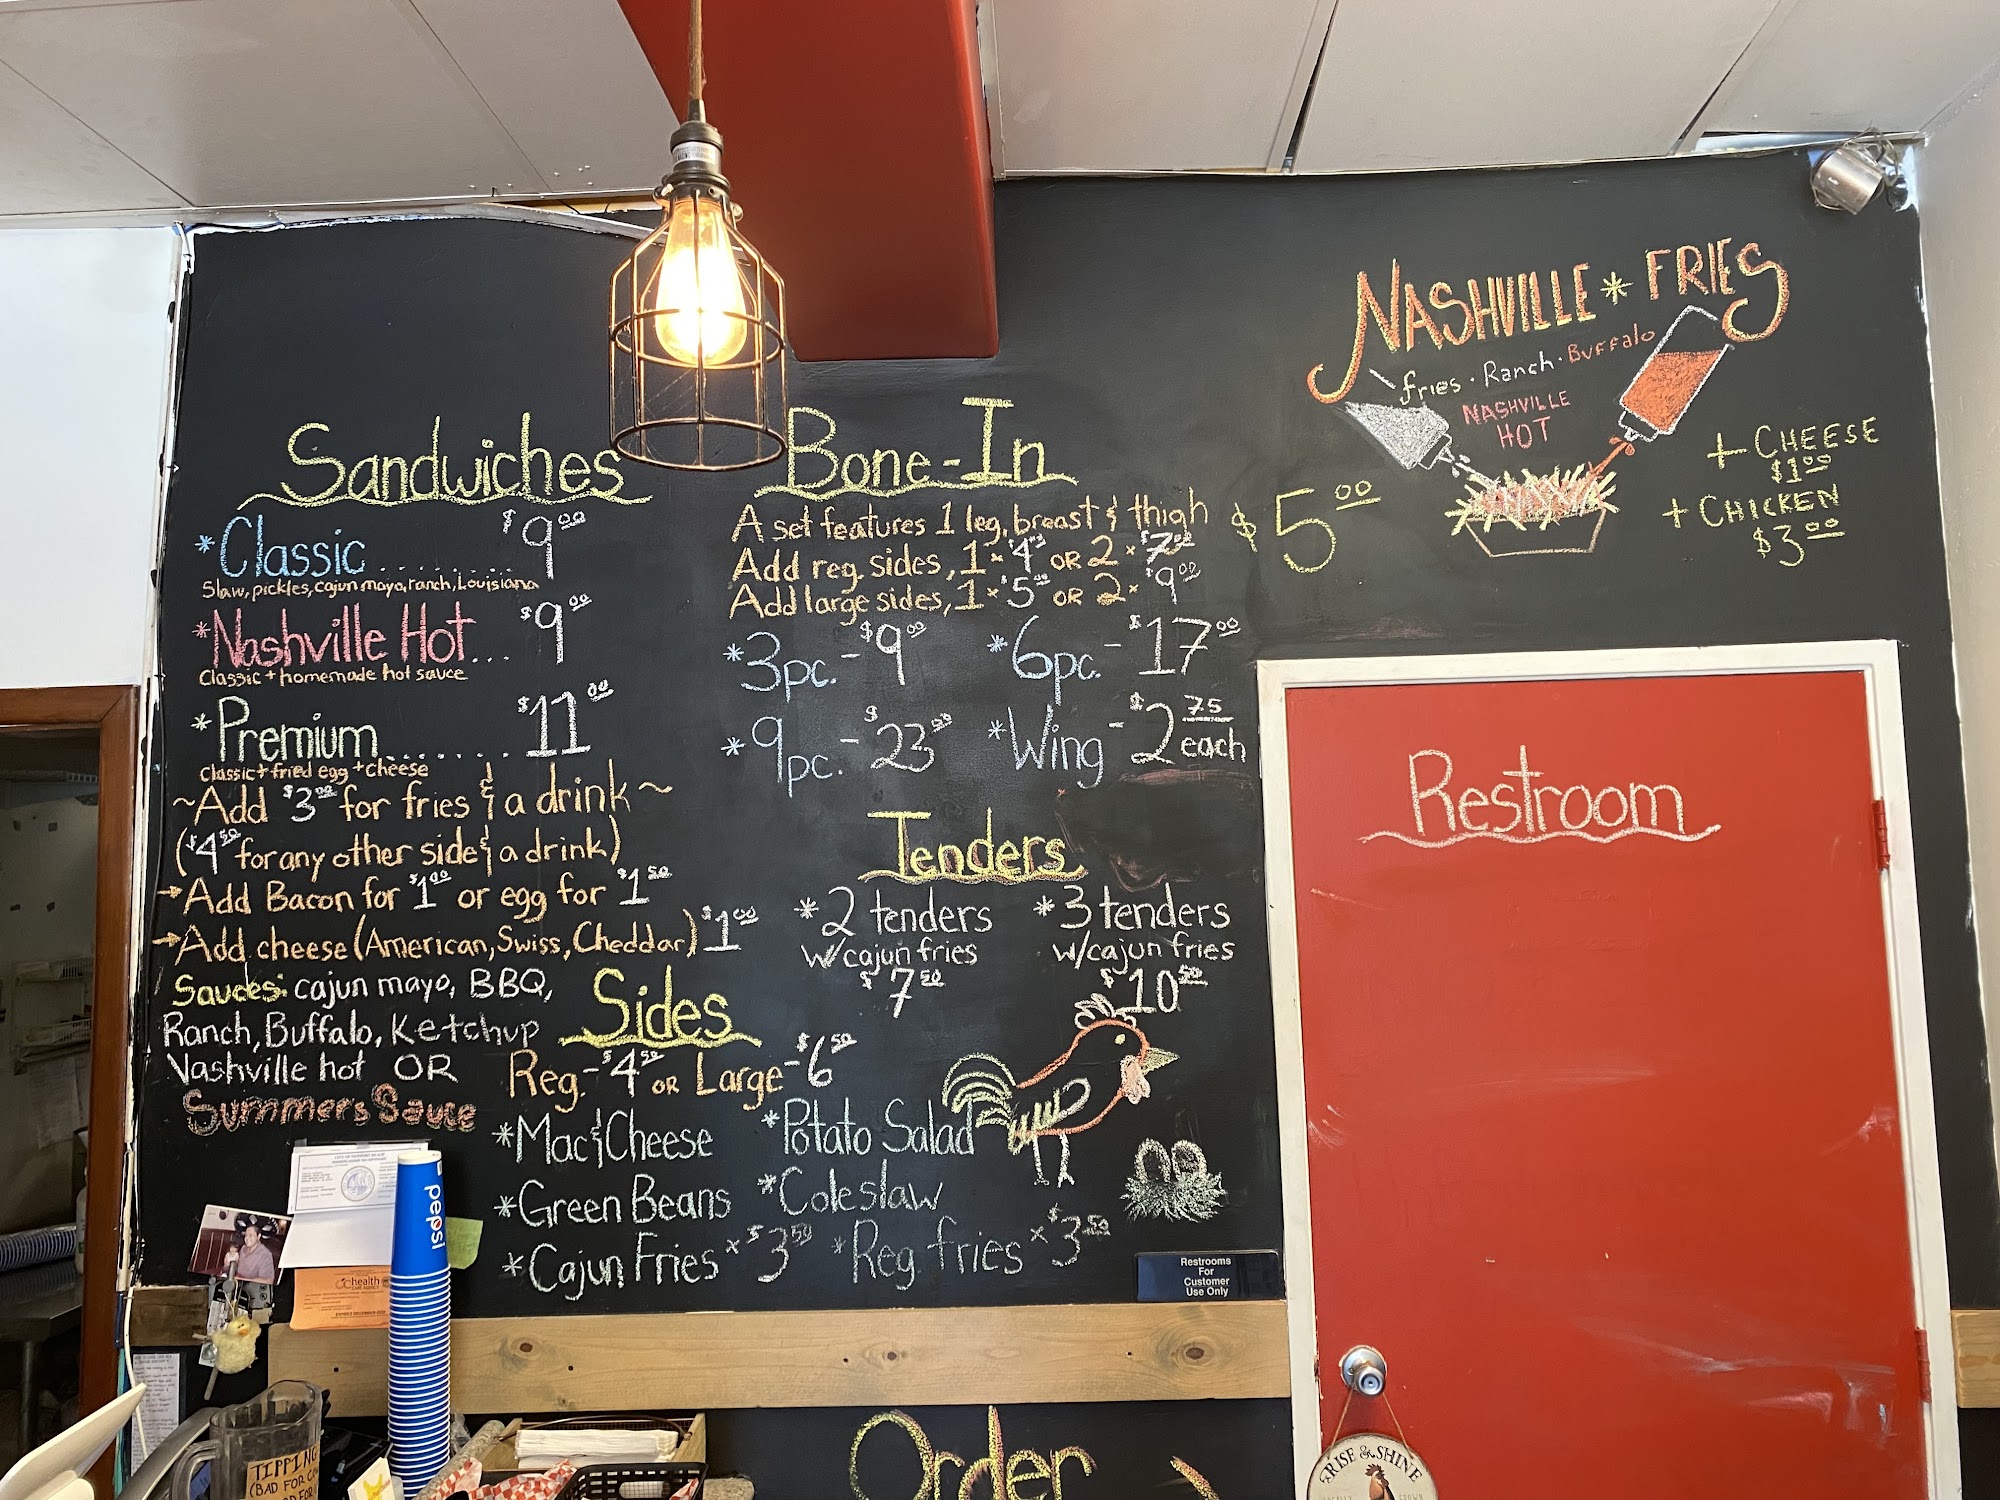 Sandwiches
*Classic........ $9.00
Slaw, pickles, cajun mayo, ranch, Louisiana
*Nashville Hot... $9.00
Classic + homemade hot sauce
*Premium....... $11.00
Classic + fried egg + cheese
~Add $3.00 for fries & a drink~
($4.50 for any other side & a drink)
→Add Bacon for $1.00 or egg for $1.50
→Add cheese (American, Swiss, Cheddar) $1.00
Sauces: cajun mayo, BBQ,
Ranch, Buffalo, Ketchup
Nashville hot OR
Summers Sauce
Bone-In
A set features 1 leg, breast & thigh
Add reg. sides, 1 × $4 OR 2 × $7.00
Add large sides, 1 × $5.00 OR 2 × $9.00
*3pc. - $9.00 *6pc. - $17.00
*9pc. - $23.50 *Wing - $2.75 each
Tenders
*2 tenders
w/cajun fries
$7.50
*3 tenders
w/cajun fries
$10.50
Sides
Reg. - $4.50 OR Large - $6.50
*Mac & Cheese *Potato Salad
*Green Beans *Coleslaw
*Cajun Fries × $3.50 *Reg. fries × $3.50
NASHVILLE * FRIES
fries · Ranch · Buffalo
NASHVILLE
HOT
$5.00
+ CHEESE
$1.00
+ CHICKEN
$3.00
Restroom
Restrooms
For
Customer
Use Only
pepsi
health
TIPPING
(BAD FOR
Order
RISE & SHINE